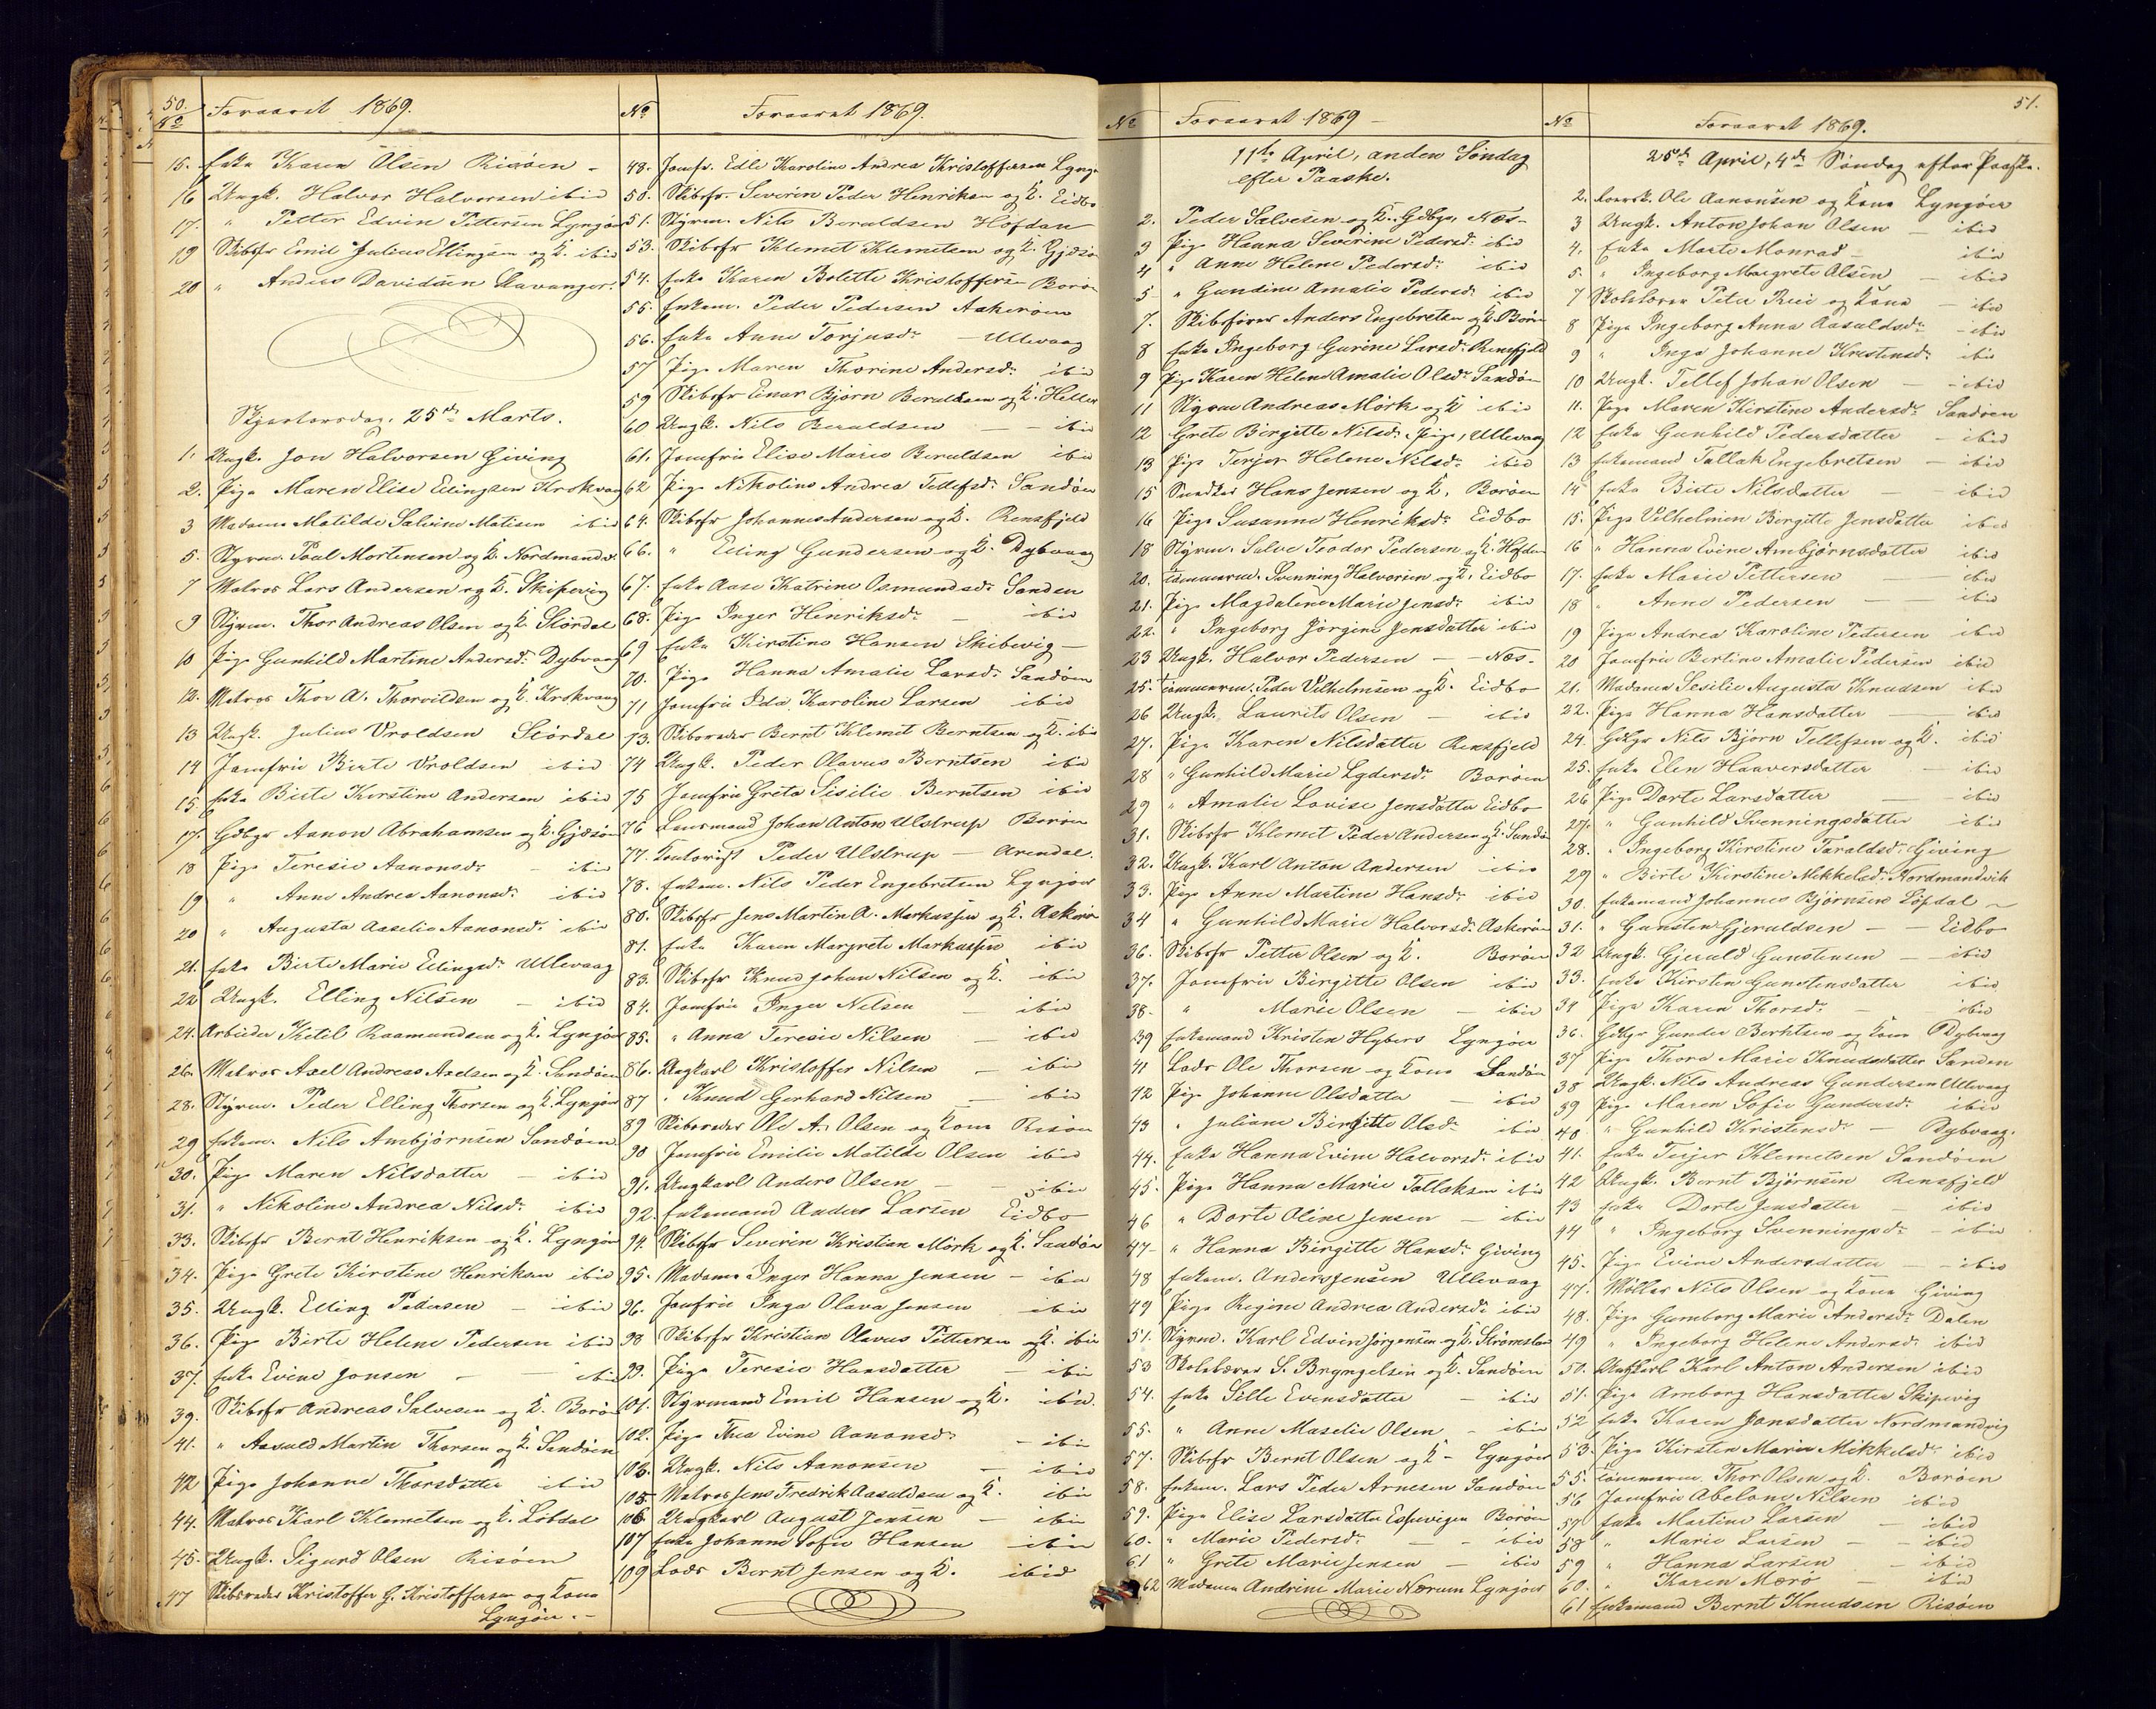 50.
No
Foraaret 1869.
15. Enke Karen Olsen Risöen -
16 Ungk. Halvor Halvorsen ibid
17. " Petter Edvin Pettersen Lyngöer
19 Skibsfr Emil Julius Ellingsen og K. ibid
20 " Anders Davidsen Stavanger.
Skjærtorsdag. 25de Marts.
1. Ungk. Jon Halvorsen Giving
2. Pige Maren Elise Ellingsen Krokvaag
3 Madame Matilde Salvine Matisen ibid
5. Styrm. Poul Mortensen og K. Nordmandv.
7 Matros Lars Andersen og K. Skipevig
9 Styrm. Thor Andreas Olsen og K. Slördal
10 Pige Gunhild Martine Andersdr. Dybvaag
12. Matros Thor A. Thorvildsen og K. Krokvaag
13 Ungk. Julius Vroldsen Slördal
14 Jomfru Birte Vroldsen ibid
15. Enke Birte Kirstine Andersen ibid
17. Gdbgr Aanon Abrahamsen og K. Gjæsöen
18 Pige Teresie Aanonsdr. - ibid
19 " Anne Andrea Aanonsdr. ibid
20 " Augusta Aaselie Aanonsdr. ibid
21. Enke Birte Marie Ellingsdr. Ullevaag
22 Ungk. Elling Nilsen - ibid
24. Arbeider Ketil Raamundsen og K. Lyngöer
26. Matros Axel Andreas Axelsen og K. Sandöen
28. Styrm. Peder Elling Thorsen og K. Lyngöer
29 Enkem. Nils Ambjörnsen Sandöen
30. Pige Maren Nilsdatter - ibid
31. " Nikoline Andrea Nilsdr. ibid
33. Skibsfr Bernt Henriksen og K. Lyngöer
34. Pige Grete Kirstine Henriksen ibid
35. Ungk. Elling Pedersen - ibid
36. Pige Birte Helene Pedersen ibid
37. Enke Evine Jonsen - - ibid
39. Skibsfr Andreas Salvesen og K. Boröen
41. " Aasuld Martin Thorsen og K. Sandöen
42 Pige Johanne Thorsdatter ibid
44. Matros Karl Klemetsen og K. Löbdal
45. Ungk. Sigurd Olsen Risöen
47 Skibsreder Kristoffer G. Kristoffersen og Kone
Lyngöer. -
No
Foraaret 1869.
48. Jomfr. Edle Karoline Andrea Kristoffersen Lyng
50. Skibsfr. Severin Peder Henriksen og K. Eidbo
51. Styrm. Nils Beruldsen Höfdan
53. Skibsfr Klemet Klemetsen og K. Gjæsö
54. Enke Karen Bolette Kristoffersen Borö
55. Enkem. Peder Pedersen Askeröen
56. Enke Anne Torjusdr. - Ullevaag
57 Pige Maren Thorine Andersdr. ibid
59 Skibsfr Einar Björn Beruldsen og K. Hellen
60 Ungk. Nils Beruldsen - - ibid
61. Jomfru Elise Marie Beruldsen ibid
62 Pige Nikoline Andrea Tellefsdr. Sandöen
64. Skibsfr Johannes Andersen og K. Rensfjeld
66. " Elling Gundersen og K. Dybvaag
67. Enke Aase Katrine Osmundsdr. Sanden
68. Pige Inger Henriksdr. - ibid
69 Enke Kirstine Hansen Skibevig -
70. Pige Hanna Amalie Larsdr. Sandöen
71 Jomfru Ida Karoline Larsen ibid
73. Skibsreder Bernt Klemet Berntsen og K. ibid
74 Ungk. Peder Olavus Berntsen ibid
75 Jomfru Grete Sisilie Berntsen ibid
76 Lensmand Johan Anton Ulstrup Boröen
77. Peder Ulstrup - Arendal.
78. Enkem. Nils Peder Engebretsen Lyngöer
80. Skibsfr Jens Martin A. Markussen og K. Askeröen
81. Enke Karen Margrete Markussen ibid
83. Skibsfr Knud Johan Nilsen og K. ibid
84. Jomfru Inger Nilsen - ibid
85. " Anna Teresie Nilsen - ibid
86. Ungkarl Kristoffer Nilsen - ibid
87 " Knud Gerhard Nilsen - ibid
89 Skibsreder Ole A. Olsen og Kone Risöen
90 Jomfru Emilie Matilde Olsen ibid
91. Ungkarl Anders Olsen - - ibid
92. Enkemand Anders Larsen Eidbo
94. Skibsfr Severin Kristian Mörk og K. Sandöen
95. Madame Inger Hanna Jensen - ibid
96. Jomfru Inga Olava Jensen ibid
98 Skibsfr Kristian Olavus Pettersen og K. ibid
99. Pige Teresie Hansdatter - ibid
101. Styrmand Emil Hansen og K. ibid.
102. Pige Thea Evine Aanonsdr. - ibid
103. Ungk. Nils Aanonsen - ibid
105 Matros Jens Fredrik Aasuldsen og K. ibid
106 Ungkarl August Jensen - ibid
107 Enke Johanne Sofie Hansen - ibid
109 Lods Bernt Jensen og K. ibid
No
Foraaret 1869 -
11te April, anden Söndag
efter Paaske.
2. Peder Salvesen og K. Gdbgr, Næs -
3 Pige Hanna Severine Pedersdr. ibid
4 " Anne Helene Pedersdr. ibid
5 - " Gundine Amalie Pedersdr. ibid
7. Skibsförer Anders Engebretsen og K. Boröen
8 Enke Ingeborg Gurine Larsdr. Rensfjeld
9 Pige Karen Helene Amalie Olsdr. Sandöen
11 Styrm Andreas Mörk og K ibid
12 Grete Birgitte Nilsdr. Pige, Ullevaag
13 Pige Terjer Helene Nilsdr. ibid
15 Snedker Hans Jensen og K. Boröen
16 Pige Susanne Henriksdr. Eidbo
18 Styrm. Salve Teodor Pedersen og K. Höfdan
20. Tömmerm. Svenning Halvorsen og K. Eidbo
21. Pige Magdalene Marie Jensdr. ibid
22. " Ingeborg Jörgine Jensdatter ibid
23 Ungk. Halvor Pedersen - - Næs.
25. Tömmerm. Peder Vilhelmsen og K. Eidbo
26 Ungk. Laurits Olsen - ibid
27. Pige Karen Nilsdatter Rensfjeld
28 " Gunhild Marie Lydersdr. Boröen
29 " Amalie Lovise Jensdatter Eidbo
31. Skibsfr Klemet Peder Andersen og K. Sandöen
32. Ungk. Karl Anton Andersen ibid
33. Pige Anne Martine Hansdr. ibid
34 " Gunhild Marie Halvorsdr. Askeröen
36. Skibsfr Petter Olsen og K. Boröen
37. Jomfru Birgitte Olsen ibid
38. " Marie Olsen - ibid
39 Enkemand Kristen Hybers Lyngöer
41 Lods Ole Thorsen og Kone Sandöen
42 Pige Johanne Olsdatter - ibid
43 " Juliane Birgitte Olsdr. ibid
44. Enke Hanna Evine Halvorsdr. ibid
45. Pige Hanna Marie Tallaksen ibid
46 " Dorte Oline Jensen - ibid
47 - " Hanna Birgitte Hansdr. Giving
48 Enkem. Anders Jensen Ullevaag
49 Pige Regine Andrea Andersdr. ibid
51. Styrm. Karl Edvin Jörgensen og K. Strömsland
53 Skolelærer S. Bryngelsen og K. Sandöen
54. Enke Sille Evensdatter - ibid
55. " Anne Maselie Olsen - ibid
57. Skibsfr Bernt Olsen og K - Lyngöer
58. Enkem. Lars Peder Arnesen Sandöen
59. Pige Elise Larsdatter Espevigen Boröen
60. " Marie Pedersdr. - - ibid
61 " Grete Marie Jensen - ibid
62 Madamen Andrine Marie Nærum Lyngöer
51.
No
Foraaret 1869.
25de April, 4de Söndag efter Paaske.
2. Ole Aanonsen og Kone Lyngöer
3 Ungk. Anton Johan Olsen - ibid
4. Enke Marte Monrad - ibid
5. " Ingeborg Margrete Olsen - ibid
7 Skolelærer Peter Riis og Kone - ibid
8 Pige Ingeborg Anna Aasuldsdr. - ibid
9 " Inga Johanne Kristensdr. ibid
10 Ungk. Tellef Johan Olsen - - ibid
11. Pige Maren Kirstine Andersdr. Sandöen
12 Enke Gunhild Pedersdatter - ibid
13 Enkemand Tallak Engebretsen - ibid
14 Enke Birte Nilsdatter - ibid
15. Pige Vilhelmine Birgitte Jensdatter ibid
16 " Hanna Evine Ambjörnsdatter ibid
17. Enke Marie Pettersen - ibid
18 " Anne Pedersen - ibid
19 Pige Andrea Karoline Pedersen ibid
20 Jomfru Bertine Amalie Pedersen ibid
21. Madamen Sesilie Augusta Knudsen ibid
22. Pige Hanna Hansdatter - ibid
24. Gdbgr Nils Björn Tellefsen og K. ibid
25. Enke Elen Haaversdatter - ibid
26 Pige Dorte Larsdatter - ibid
27. " Gunhild Svenningsdatter ibid
28. " Ingeborg Kirstine Taraldsd. Giving
29 " Birte Kirstine Mikkelsdr. Nordmandvik
30. Enkemand Johannes Björnsen Löpdal -
31. " Gunsten Gjeruldsen - - Eidbo
32 Ungk. Gjeruld Gunstensen - ibid
33. Enke Kirsten Gunstensdatter ibid
34 Pige Karen Thorsdr. - ibid
36. Gdbgr Gunder Berntsen og Kone Dybvaag
37 Pige Thora Marie Knudsdatter Sanden
38 Ungk. Nils Andreas Gundersen Ullevaag
39 Pige Maren Sofie Gundersdr. ibid
40 " Gunhild Kristensdr. - Dybvaag.
41. Enke Terjer Klemetsen Sandöen
42 Ungk. Bernt Björnsen Rensfjeld
43 Enke Dorte Jensdatter - ibid
44 " Ingeborg Svenningsdr. - ibid
45. Pige Evine Andersdatter - ibid
47. Möller Nils Olsen og Kone Giving
48. Pige Gumborg Marie Andersdr. Dalen
49 " Ingeborg Helene Andersdr. ibid
50. Ungkarl Karl Anton Andersen ibid
51. Pige Amborg Hansdatter Skipevig
52 Enke Karen Jonsdatter Nordmandvig
53. Pige Kirsten Maria Mikkelsdr. ibid
55. Tömmerm. Thor Olsen og K. Boröen
56 Jomfru Abelone Nilsen ibid
57 Enke Martine Larsen - ibid
58 " Marie Larsen - - ibid
59 " Hanna Larsen - ibid
60. " Karen Mærö - ibid
61 Enkemand Bernt Knudsen Risöen